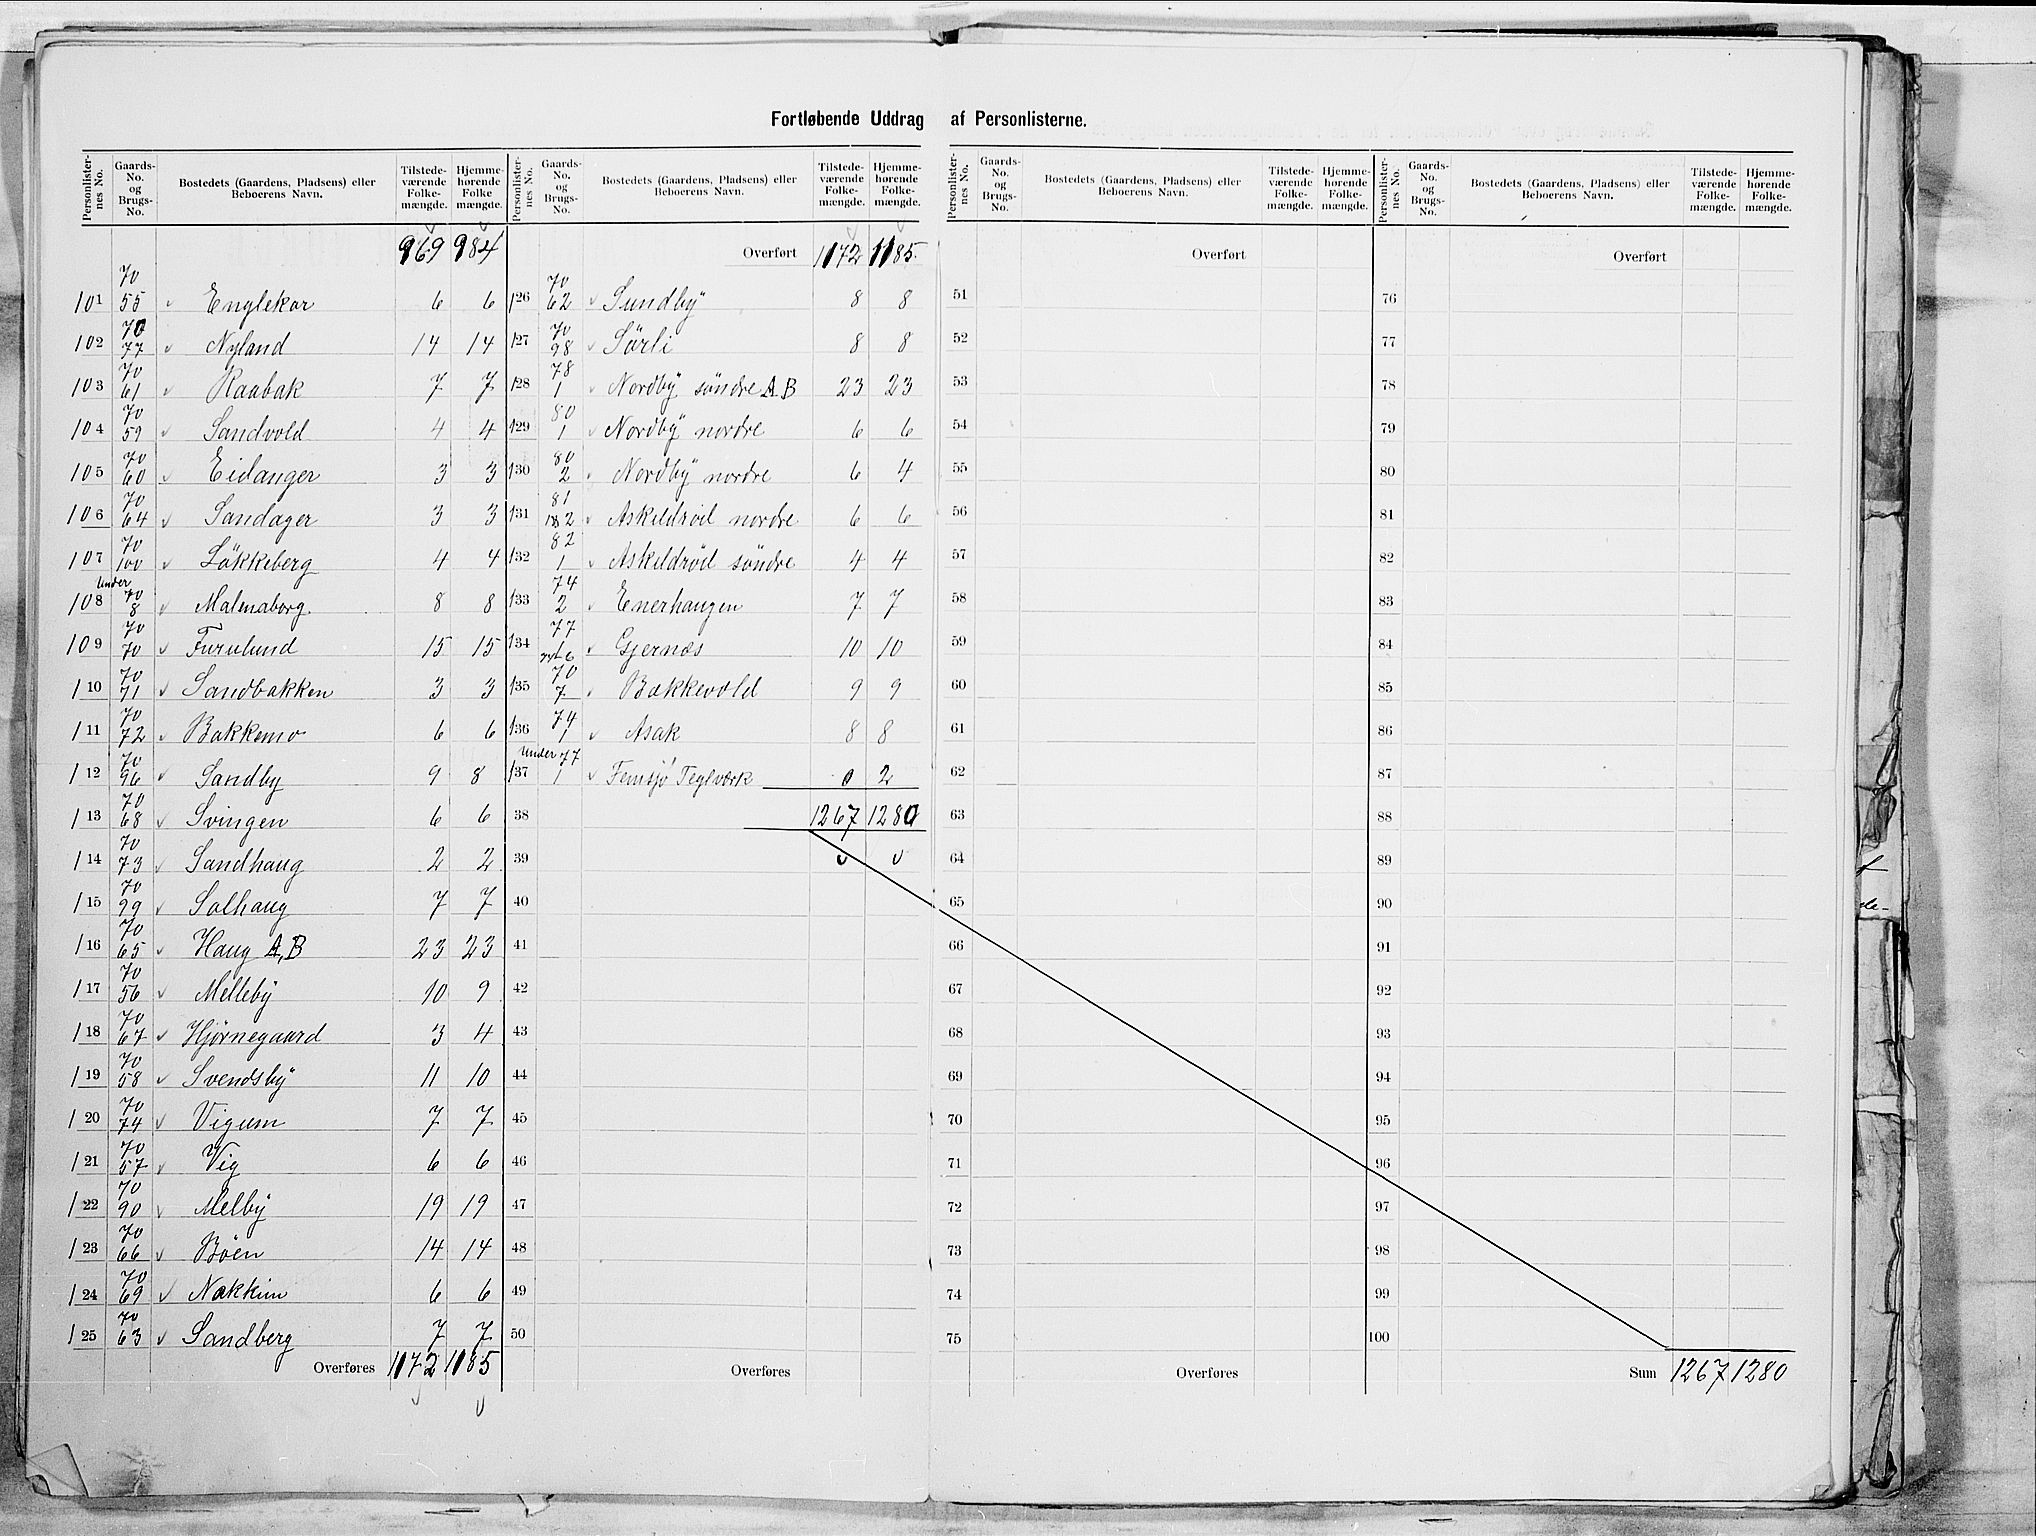 Fortløbende Uddrag af Personlisterne.
Personlisternes No. Gaards-No. og Brugs-No. Bostedets (Gaardens, Pladsens) eller Beboerens Navn. Tilstedeværende Folkemængde. Hjemmehørende Folkemængde.
969 984
101 70/55 Englekor 6 6
102 70/77 Nyland 14 14
103 70/61 Raabak 7 7
104 70/59 Sandvold 4 4
105 70/60 Eidanger 3 3
106 70/64 Sandager 3 3
107 70/100 Løkkeberg 4 4
108 Under 70/8 Malenaborg 8 8
109 70/70 Furulund 15 15
110 70/71 Sandbakken 3 3
111 70/72 Bakkemo 6 6
112 70/96 Sandby 9 8
113 70/68 Svingen 6 6
114 70/73 Sandhaug 2 2
115 70/99 Solhaug 7 7
116 70/65 Haug A,B 23 23
117 70/56 Melleby 10 9
118 70/67 Hjørnegaard 3 4
119 70/58 Svendsby 11 10
120 70/74 Vigum 7 7
121 70/57 Vig 6 6
122 70/90 Melby 19 19
123 70/66 Böen 14 14
124 70/69 Nakkim 6 6
125 70/63 Sandberg 7 7
Overføres 1172 1185
Personlisternes No. Gaards-No. og Brugs-No. Bostedets (Gaardens, Pladsens) eller Beboerens Navn. Tilstedeværende Folkemængde. Hjemmehørende Folkemængde.
Overført 1172 1185.
126 70/62 Sundby 8 8
127 70/98 Sörli 8 8
128 78/1 Nordby søndre A B 23 23
129 80/1 Nordby nordre 6 6
130 80/2 Nordby nordre 6 4
131 81/2 Askeldrød nordre 6 6
132 82/1 Askeldrød søndre 4 4
133 74/2 Enerhaugen 7 7
134 77/6 Gjernæs 10 10
135 70/7 Bakkevold 9 9
136 74/1 Asak 8 8
137 Under 77/1 Femsjø Teglværk 0 2
38 1267 1280
39
40
41
42
43
44
45
46
47
48
49
50
Overføres
Personlisternes No. Gaards-No. og Brugs-No. Bostedets (Gaardens, Pladsens) eller Beboerens Navn. Tilstedeværende Folkemængde. Hjemmehørende Folkemængde.
Overført
51
52
53
54
55
56
57
58
59
60
61
62
63
64
65
66
67
68
69
70
71
72
73
74
75
Overføres
Personlisternes No. Gaards-No. og Brugs-No. Bostedets (Gaardens, Pladsens) eller Beboerens Navn. Tilstedeværende Folkemængde. Hjemmehørende Folkemængde.
Overført
76
77
78
79
80
81
82
83
84
85
86
87
88
89
90
91
92
93
94
95
96
97
98
99
100
Sum 1267 1280